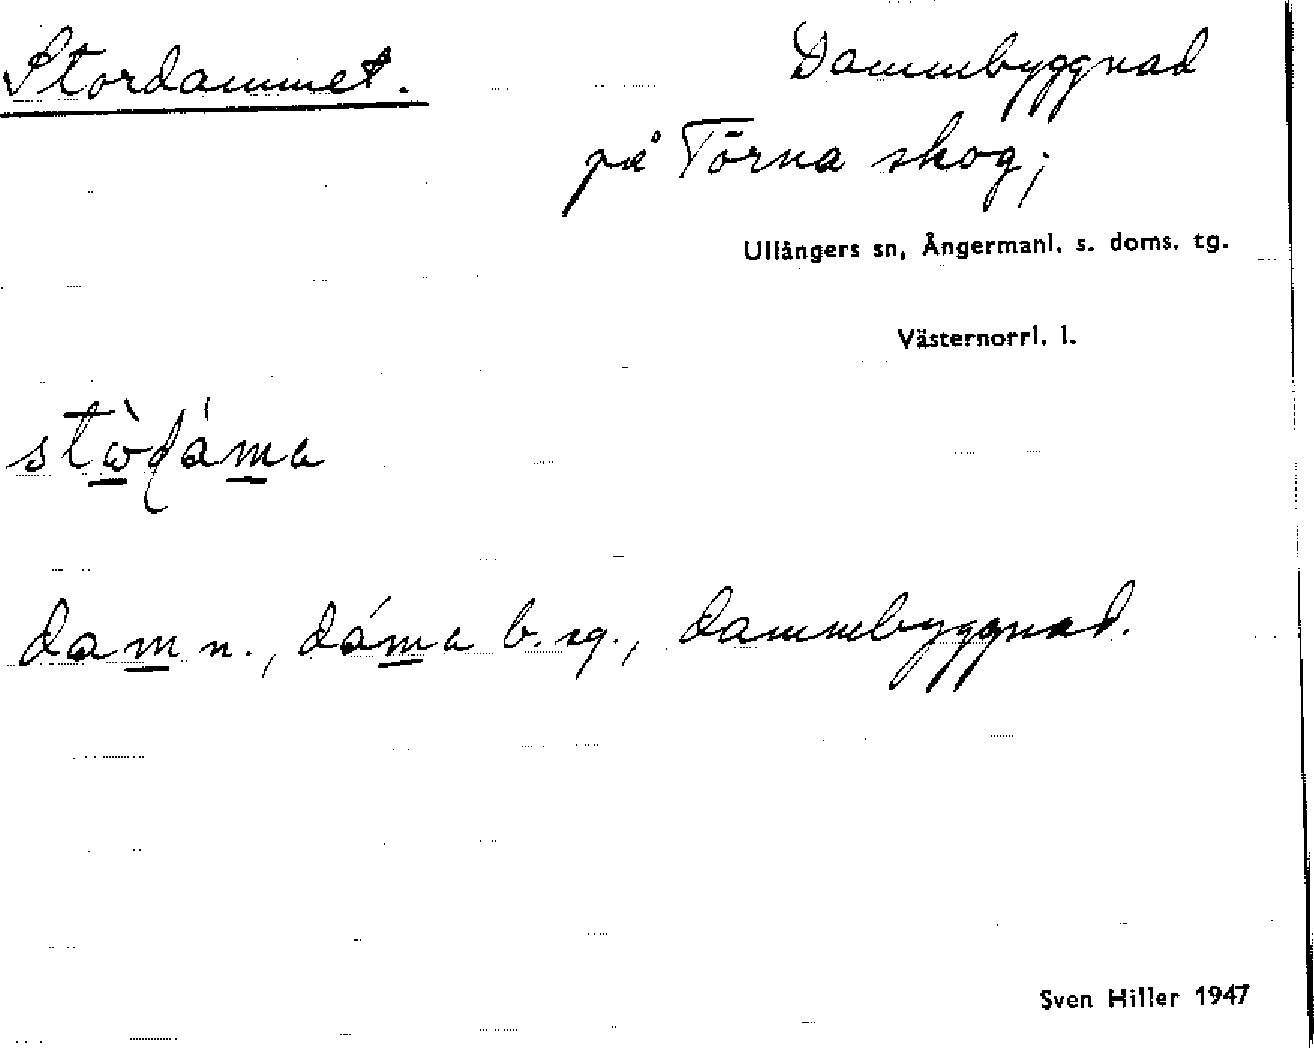 Stordammet.
Dammbyggnad
på Törna skog;
Ullångers sn, Ångermanl. s. doms. tg.
Västernorrl. l.
stὼɖáma
dam n., dáma b. sg., dammbyggnad.
Sven Hiller 1947